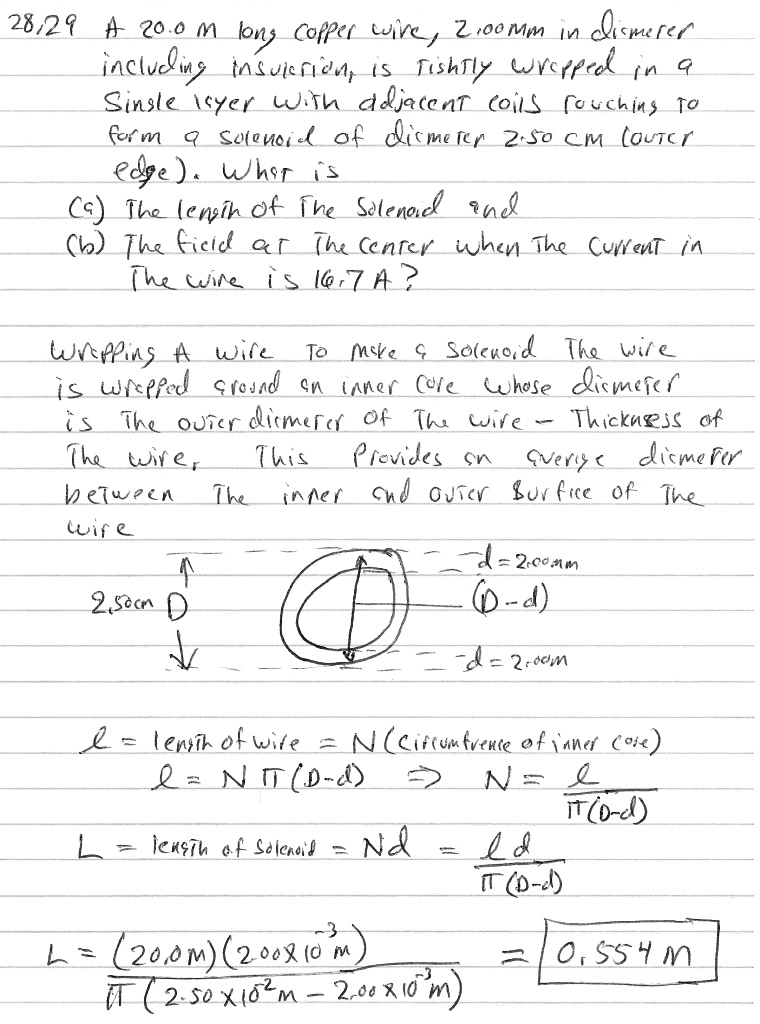 28,29 A 20.0 m long copper wire, 2.00mm in diameter
including insulation, is tightly wrapped in a
single layer with adjacent coils touching to
form a solenoid of diameter 2.50 cm (outer
edge). What is
(a) The length of the solenoid and
(b) The field at the center when the current in
the wire is 16.7 A?
Wrapping A wire to make a solenoid the wire
is wrapped around an inner core whose diameter
is the outer diameter of the wire – Thickness of
the wire, This Provides an average diameter
between the inner and outer surface of the
wire
d = 2.00mm
2.50cm D (D-d)
d = 2.00m
l = length of wire = N (circumfrence of inner core)
l = N π (D-d) ⇒ N = l / π(D-d)
L = length of solenoid = Nd = l d / π (D-d)
L = (20.0m)(2.00x10^-3 m) / π (2.50x10^-2 m – 2.00x10^-3 m) = 0.554 m